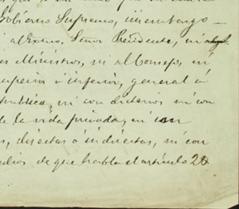 Gobierno Supremo, sin embargo
Señor Presidente, ni
es Ministros, ni al Consejo, ni
superior ó inferior, general ó
ni con dicterios ni con
de la vida privada, ni con
s, directas ó indirectas, ni con
dios de que habla el artículo 28